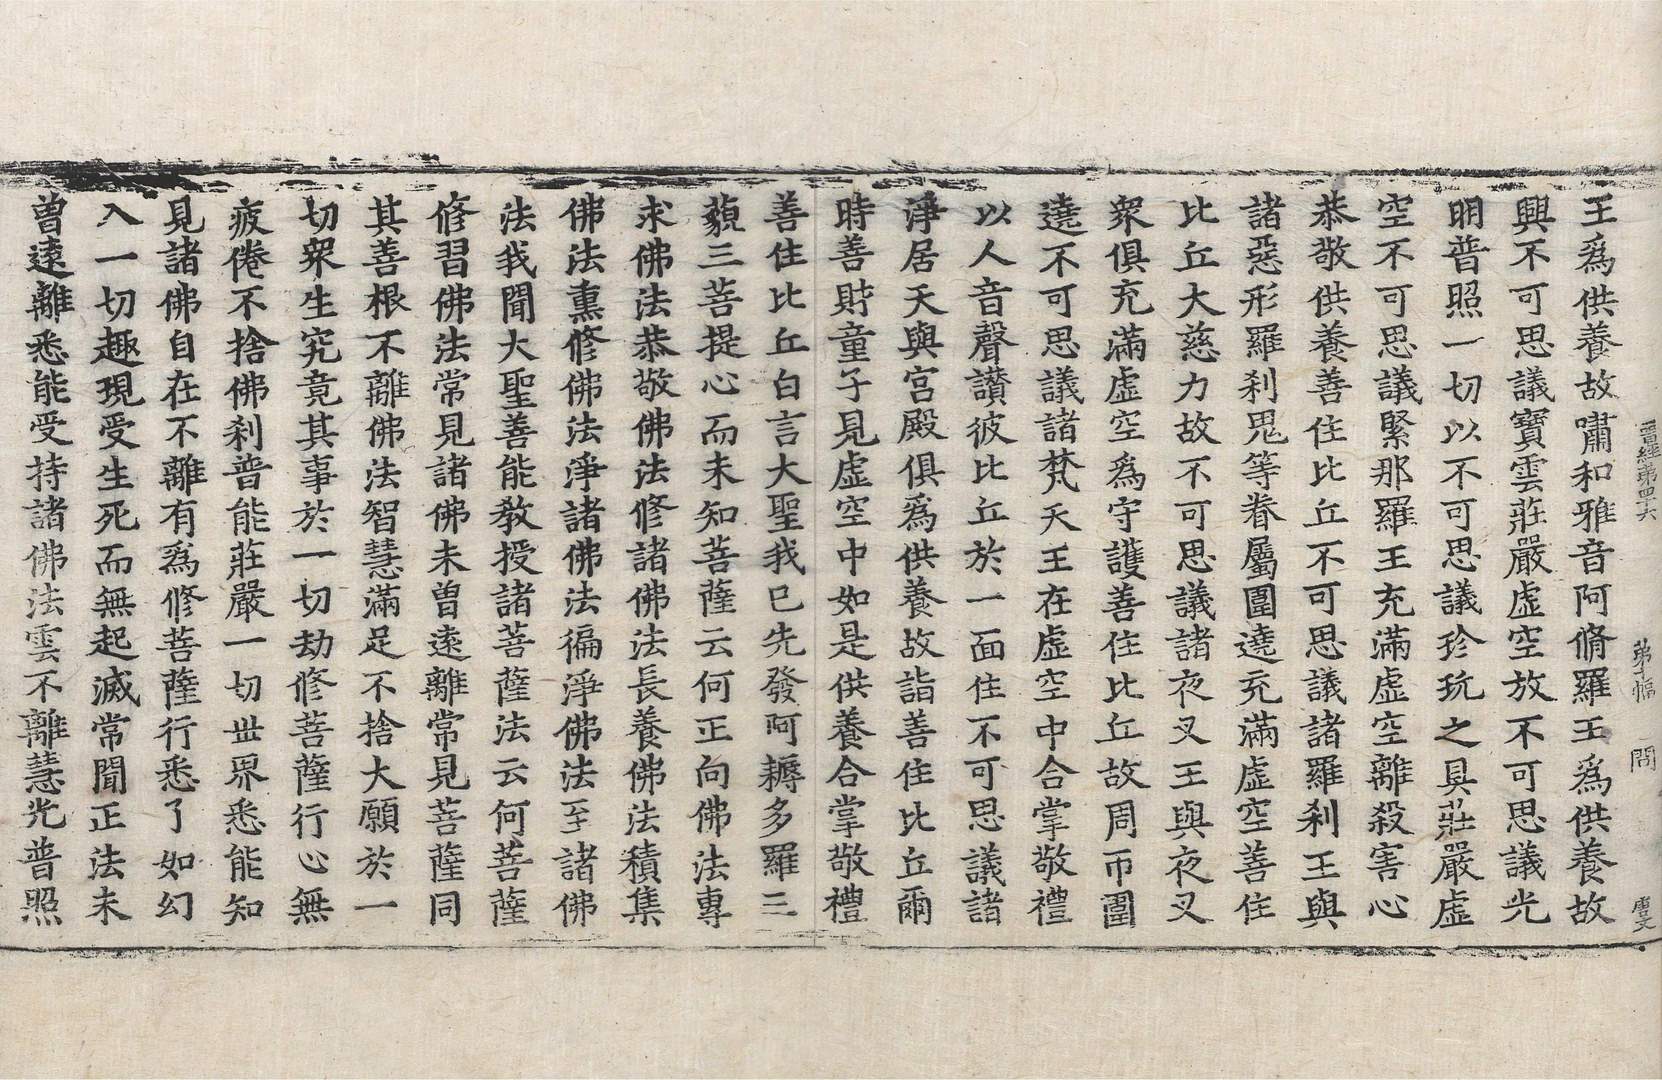 王為供養故嘯和雅音阿脩羅王為供養故
興不可思議寶雲莊嚴虛空放不可思議光
明普照一切以不可思議珍玩之具莊嚴虛
空不可思議緊那羅王充滿虛空離殺害心
恭敬供養善住比丘不可思議諸羅剎王與
諸惡形羅剎鬼等眷屬圍遶充滿虛空善住
比丘大慈力故不可思議諸夜叉王與夜叉
眾俱充滿虛空為守護善住比丘故周帀圍
遶不可思議諸梵天王在虛空中合掌敬禮
以人音聲讃彼比丘於一面住不可思議諸
淨居天與宮殿俱為供養故詣善住比丘爾
時善財童子見虛空中如是供養合掌敬禮
善住比丘白言大聖我已先發阿耨多羅三
藐三菩提心而未知菩薩云何正向佛法專
求佛法恭敬佛法修諸佛法長養佛法積集
佛法熏修佛法淨諸佛法徧淨佛法至諸佛
法我聞大聖善能教授諸菩薩法云何菩薩
修習佛法常見諸佛未曽遠離常見菩薩同
其善根不離佛法智慧滿足不捨大願於一
切眾生究竟其事於一切劫修菩薩行心無
疲倦不捨佛剎普能莊嚴一切世界悉能知
見諸佛自在不離有為修菩薩行悉了如幻
入一切趣現受生死而無起滅常聞正法未
曽遠離悉能受持諸佛法雲不離慧光普照